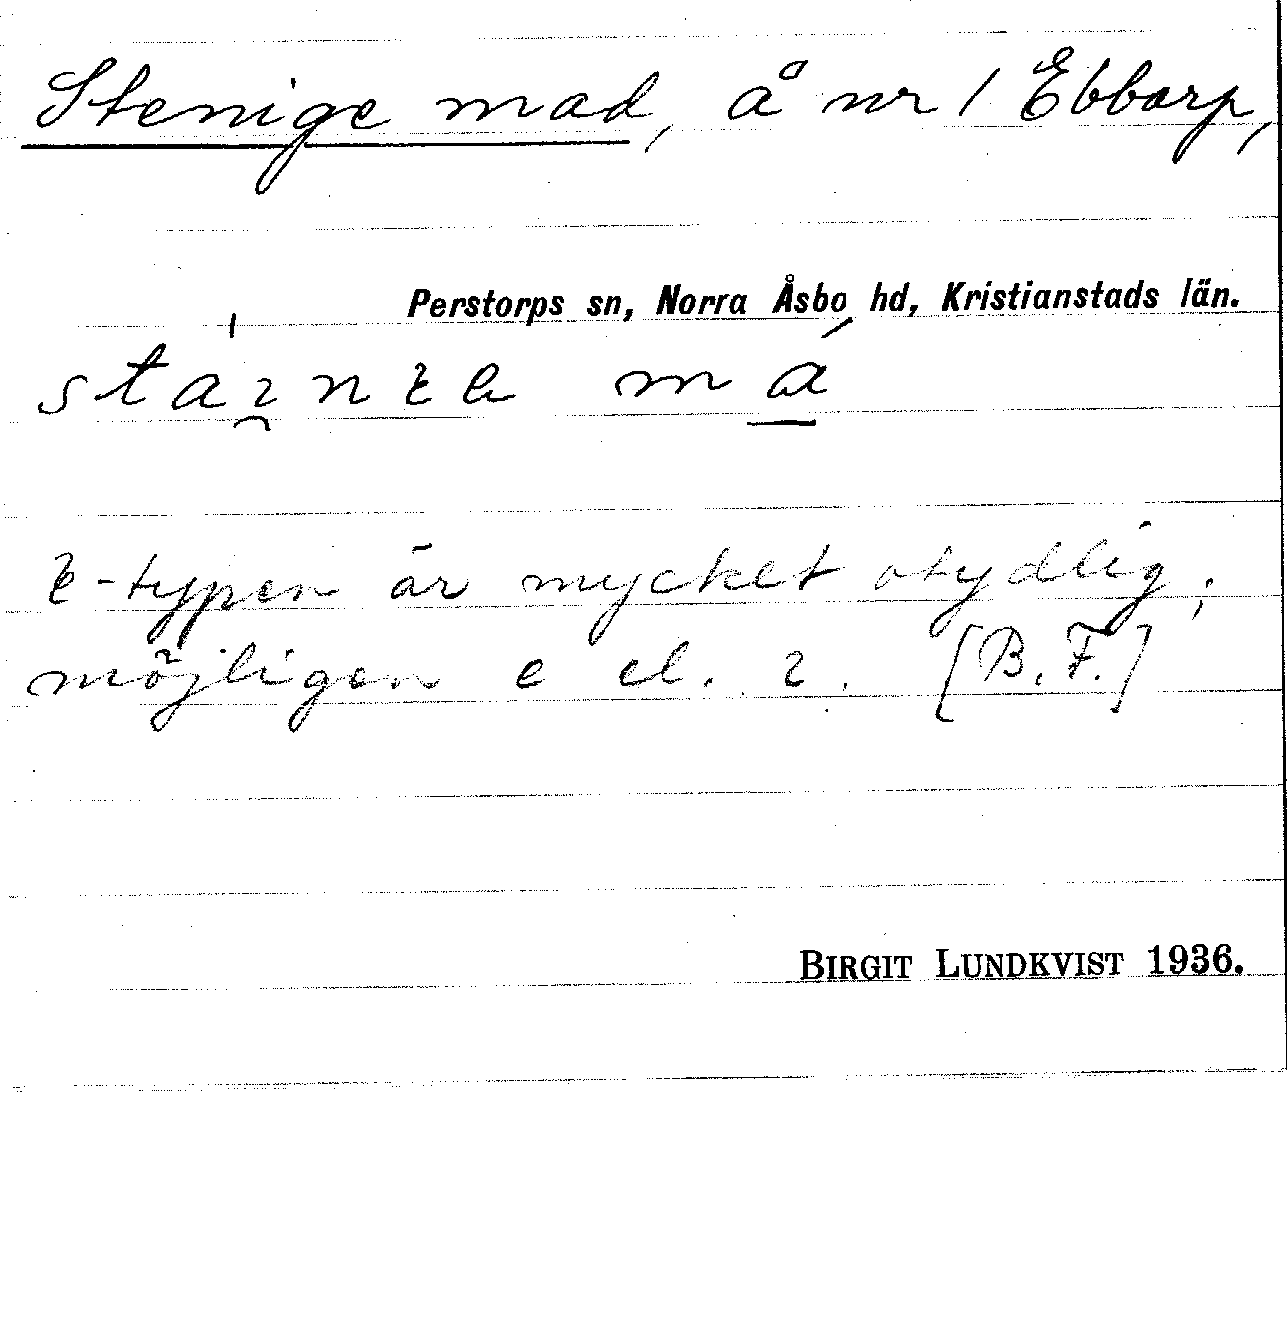 Stenige mad, å nr 1 Ebbarp,
Perstorps sn, Norra Åsbo hd, Kristianstads län.
må
-typen är mycket otydlig;
möjligen e el. [B.F.]
BIRGIT LUNDKVIST 1936.